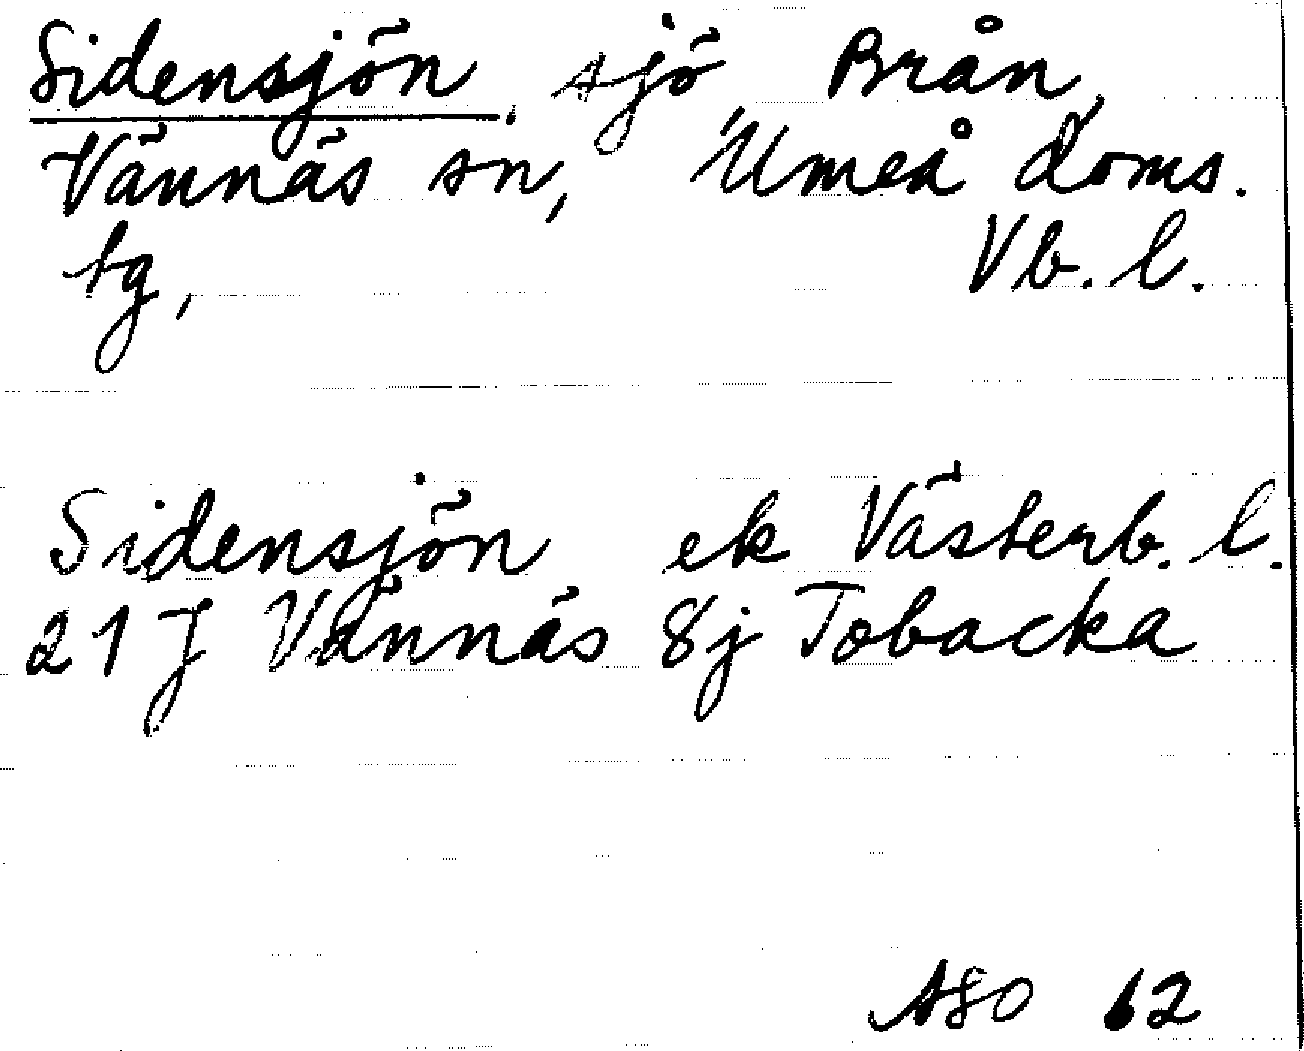 Sidensjön, sjö, Brån,
Vännäs sn, Umeå doms.
tg, Vb. l.
Sidensjön ek Västerb. l.
21 J Vännäs 8j Tobacka
ASO 62